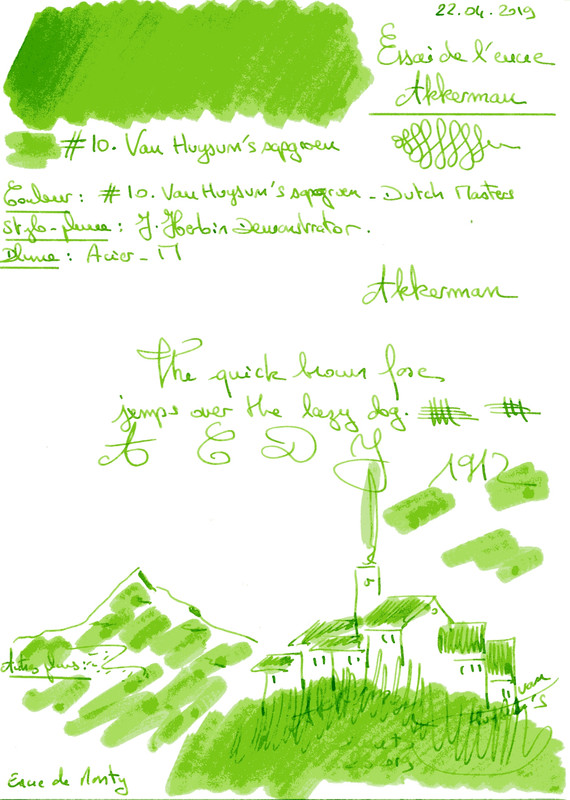 22.04.2019
Essai de l'encre
Akkerman
#10. Van Huysum's sapgroen
Couleur : #10. Van Huysum's sapgroen - Dutch Masters
Stylo-plume : J. Herbin Demonstrator.
Plume : Acier - M
Akkerman
The quick brown fox
jumps over the lazy dog.
A C D J
1912
Autres plumes :
van
Encre de Monty